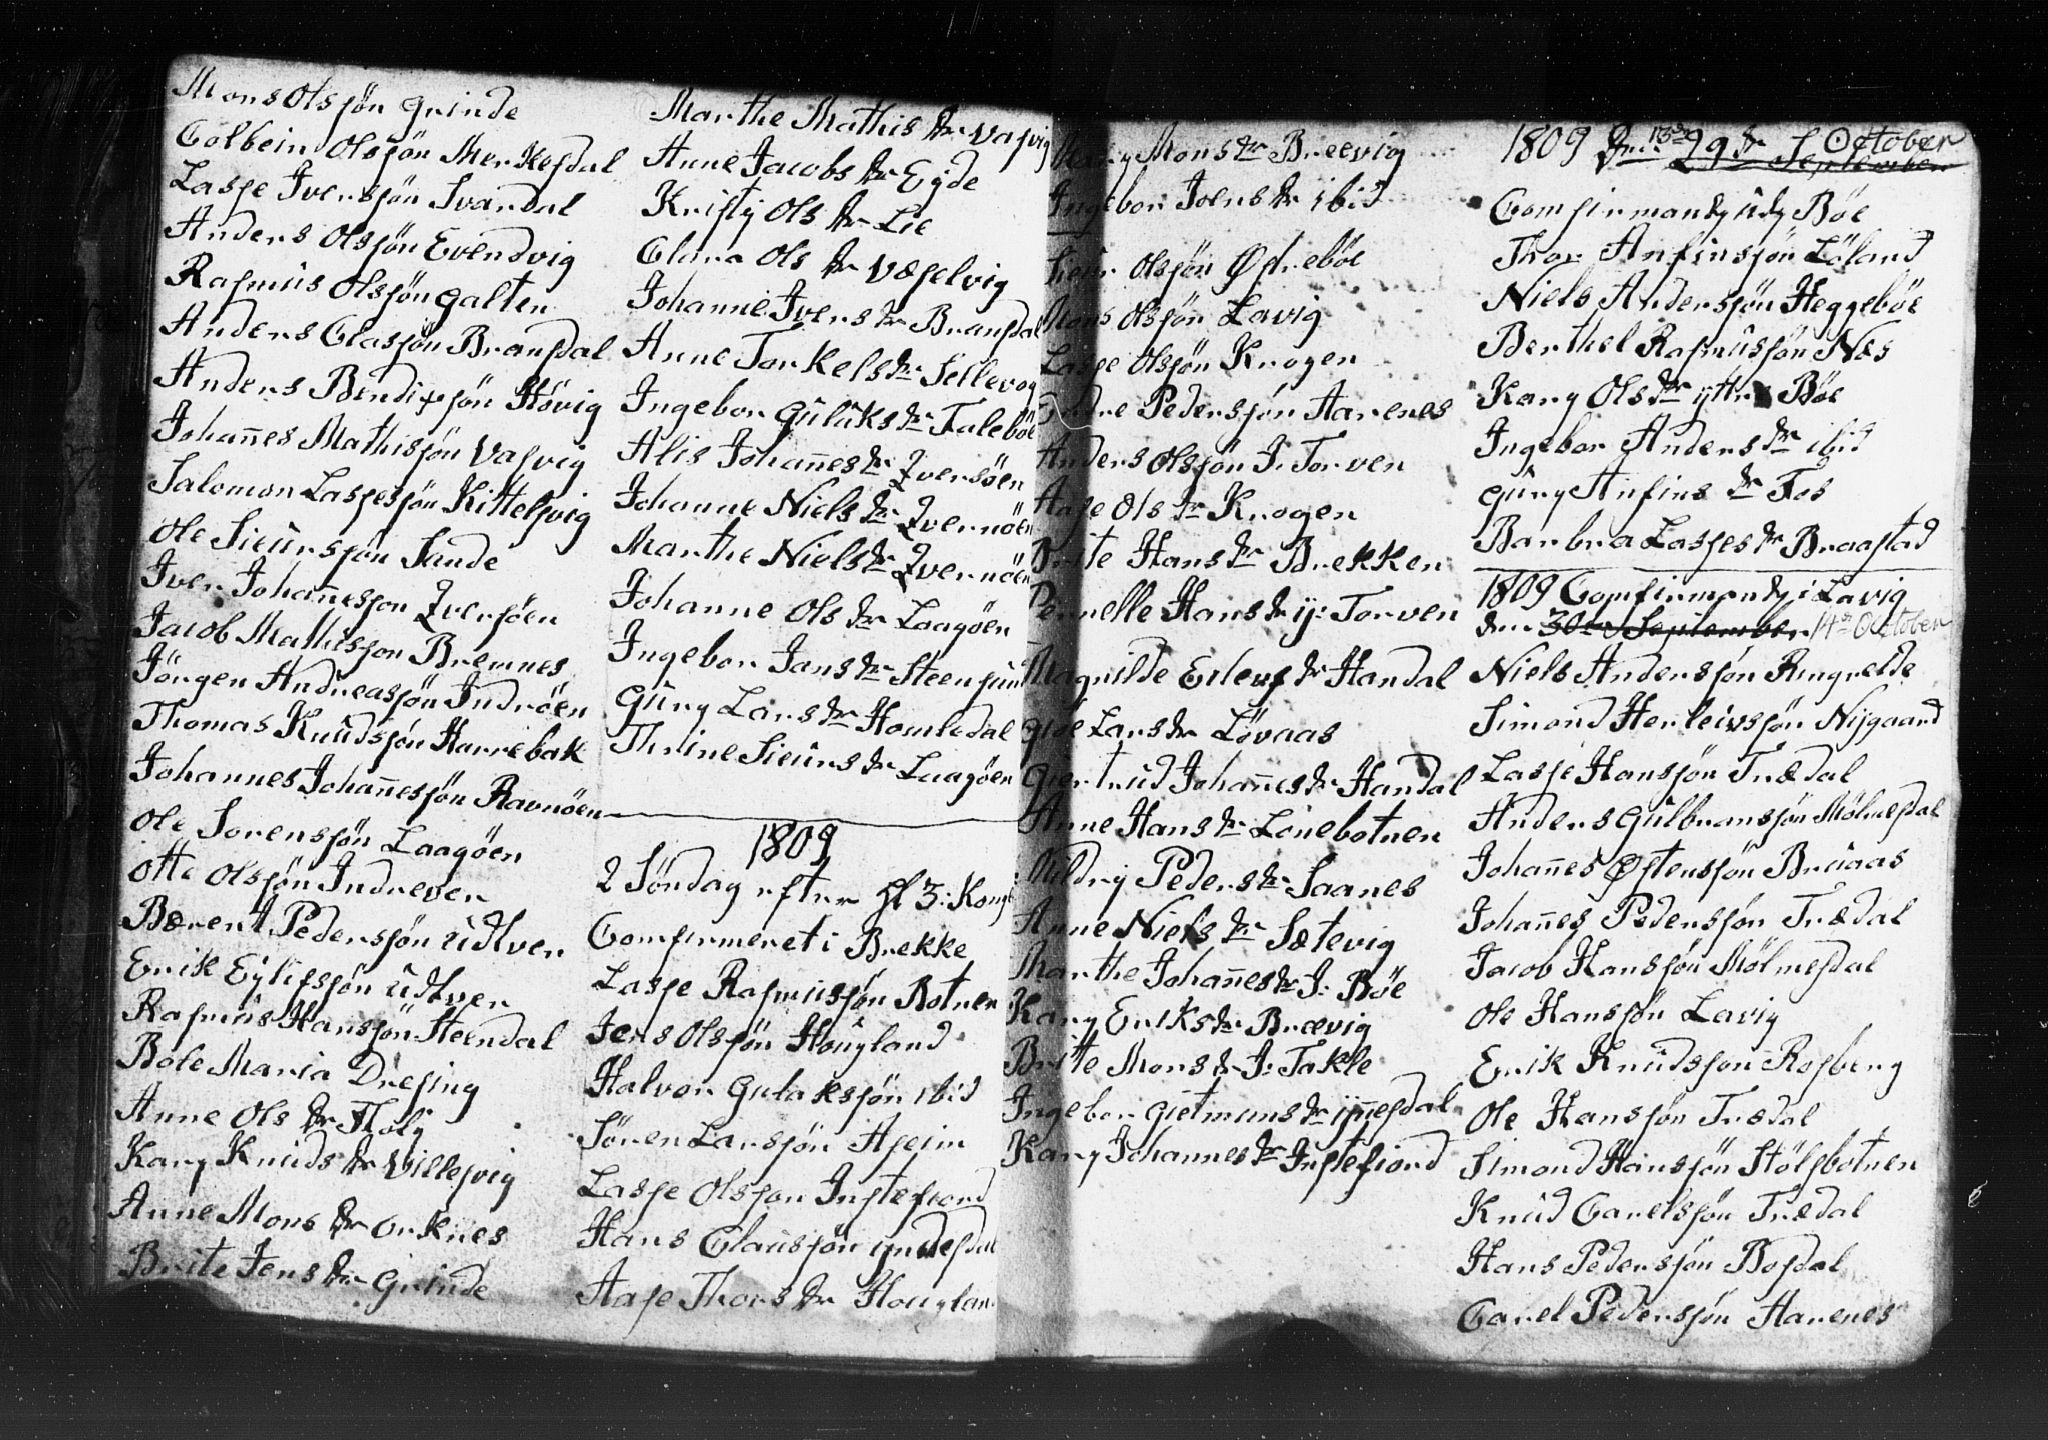 Mons Olssøn Grinde
Colbein Olssøn Merkesdal
Lasse Iverssøn Svardal
Anders Olssøn Evendvig
Rasmus Olssøn Galten
Anders Classøn Bransdal
Anders Bendixsøn Høvig
Johañes Mathissøn Vasvig
Salomon Lassessøn Kittelsvig
Ole Siurssøn Sande
Iver Johañessøn Qversøen
Jacob Mathissøn Bremnes
Jörgen Andreassøn Indrøen
Thomas Knudssøn Harrebak
Johannes Johañessøn Ravnøen
Ole Sorenssøn Laagøen
Otte Olssøn Indrever
Bærent Pederssøn Udtver
Erik Eylifssøn Udtver
Rasmus Hanssøn Steendal
Bole Maria Dresing
Anne Ols dr
Kary Knuds dr Villesvig
Anne Mons dr Orknes
Brite Jens dr Grinde
Marthe Mathis dr Vasvig
Anne Jacobs dr Eyde
Kristy Ols dr Lie
Clara Ols dr Væselvig
Johanne Ivers dr Bransdal
Anne Torkels dr Sellevog
Ingebor Gulaks dr Falebøe
Alis Johañes dr Qversøen
Johanne Niels dr Qvernøen
Marthe Niels dr Qvernøen
Johanne Ols dr Laagøen
Ingebor Jans dr Steensund
Gury Lars dr Homledal
Thrine Siurs dr Laagøen
1809
2 Söndag efter Hl 3: Kong
Comfirmeret i Brekke
Lasse Rasmussøn Botnen
Jens Olssøn Hougland
Halvor Gulakssøn ibid
Søren Larssøn Aseim
Lasse Olssøn Instefiord
Hans Claussøn Yndesdal
Aase Thors dr Houglan
Mons dr Breevig
Ingebor Ivers dr ibid
Olssøn Østrebøe
Mons Olssøn Lavig
Lasse Olssøn Krogen
Andre Pederssøn Aarenes
Anders Olssøn I. Torven
Aase Ols dr Krogen
Brite Hans dr Brekken
Pernelle Hans dr y: Torven
Magnilde Erlens dr Handal
Giøe Lars dr Løvaas
Giertrud Johañes dr Handal
Anne Hans dr Lonebotnen
Peders dr Saanes
Anne Niels dr Sætevig
Marthe Johañes dr I: Bøe
Kary Eriks dr Brævig
Britte Mons dr I: Takle
Ingebor Gietmuns dr Yñesdal
Kary Johannes dr Instefiord
1809 den 13de 29de September October
Comfirmandz udy Bøe
Thor Anfinssøn Löland
Niels Anderssøn Heggebøe
Berthel Rasmussøn Næs
Kary Ols dr yttre Bøe
Ingebor Anders dr ibid
Gury Anfins dr Fos
Barbra Lasses dr Braastad
1809 Comfirmandz i Lavig
den 30te September 14de October
Niels Anderssøn Ringrelde
Simond Herleivssøn Nÿgaard
Lasse Hanssøn Trædal
Anders Gulbranssøn Mölmesdal
Johañes Østenssøn Bruaas
Johañes Pederssøn Trædal
Jacob Hanssøn Mölmesdal
Ole Hanssøn Lavig
Erik Knudssøn Rosberg
Ole Hanssøn Trædal
Simond Hanssøn Stølsbotnen
Knud Carelssøn Trædal
Hans Pederssøn Bosdal
Carel Pederssøn Harenes